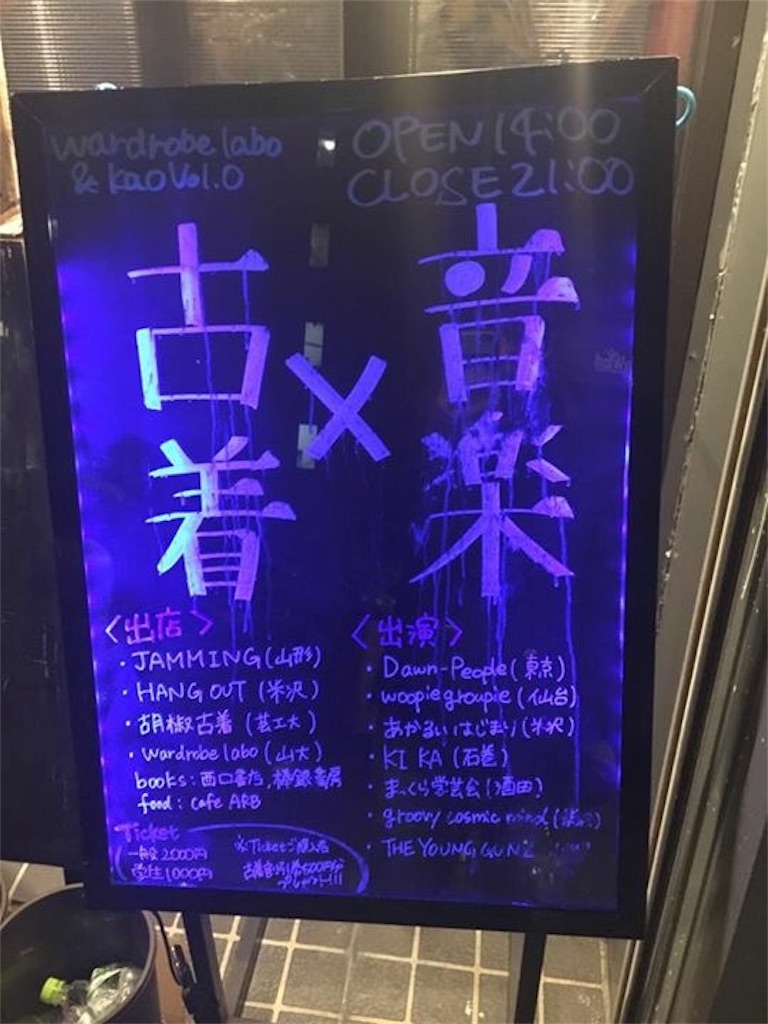 wardrobe labo
& kao Vol.0
OPEN 14:00
CLOSE 21:00
古着
×
音楽
〈出店〉
・JAMMING (山形)
・HANG OUT (米沢)
・胡椒古着 (芸工大)
・wardrobe labo (山大)
books: 西口書店, 書房
food: cafe ARB
Ticket
一般 2000円
学生 1000円
※Ticketご購入者
古着割引券500円分
プレゼント!!!
〈出演〉
・Dawn-People (東京)
・woopie groupie (仙台)
・あかるいはじまり (米沢)
・KI KA (石巻)
・まっくら学芸会 (酒田)
・groovy cosmic mind
・THE YOUNG GUNZ